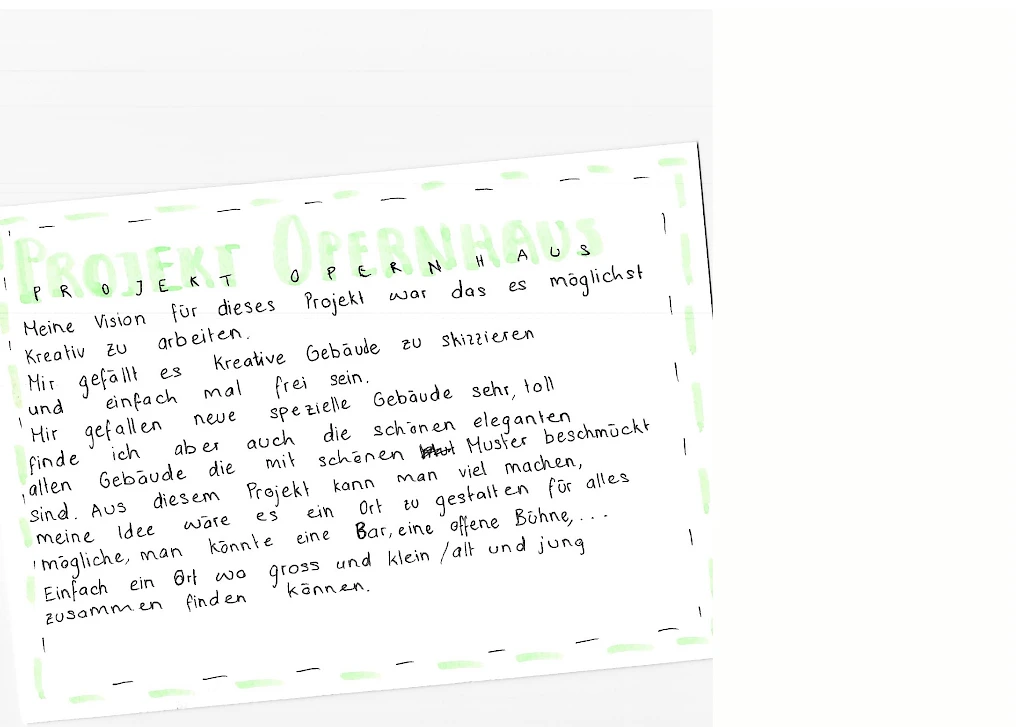 PROJEKT OPERNHAUS
PROJEKT OPERNHAUS
Meine Vision für dieses Projekt war das es möglichst
Kreativ zu arbeiten.
Mir gefällt es Kreative Gebäude zu skizzieren
und einfach mal frei sein.
Mir gefallen neue spezielle Gebäude sehr, toll
finde ich aber auch die schönen eleganten
allen Gebäude die mit schönen Muster beschmückt
sind. Aus diesem Projekt kann man viel machen,
meine Idee wäre es ein Ort zu gestalten für alles
mögliche, man könnte eine Bar, eine offene Bühne,...
Einfach ein Ort wo gross und klein /alt und jung
zusammen finden können.